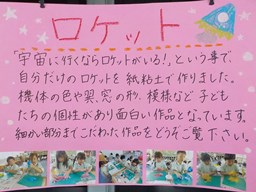 ロケット
「宇宙に行くならロケットがいる!」という事で、
自分だけのロケットを紙粘土で作りました。
機体の色や翼、窓の形、模様など子ども
たちの個性があり面白い作品となっています。
細かい部分までこだわった作品をどうぞご覧下さい。